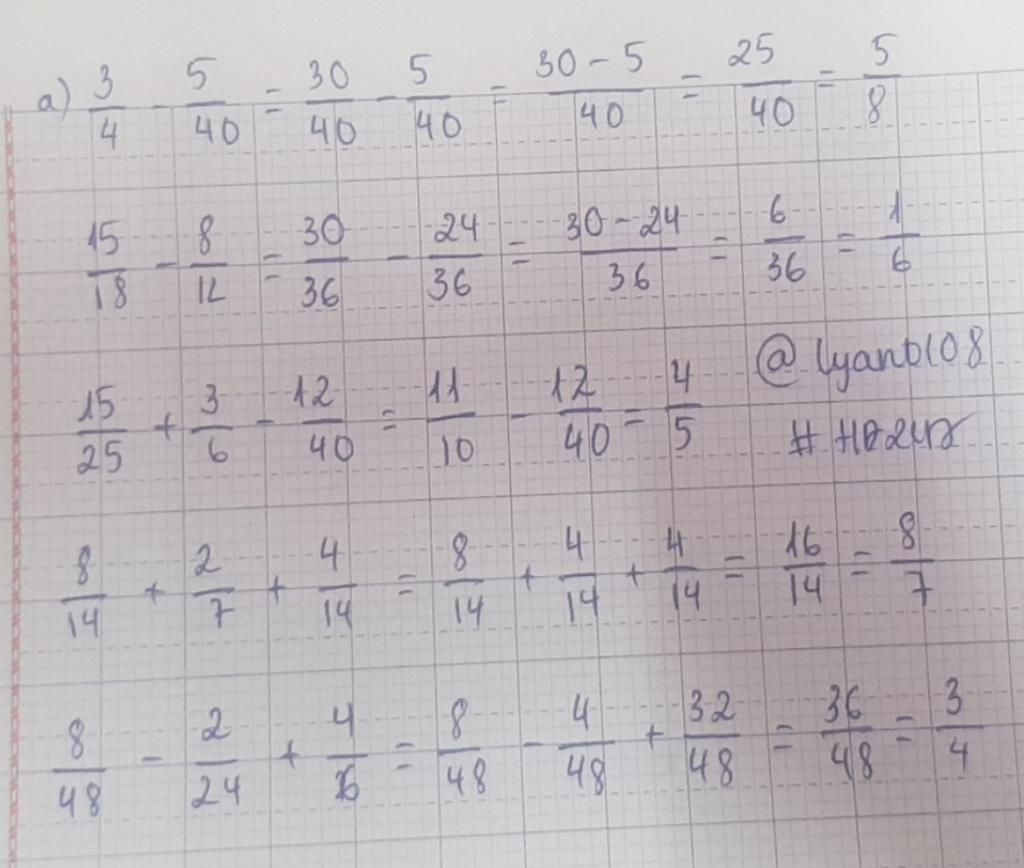 а) 3/4 - 5/40 = 30/40 - 5/40 = (30 - 5)/40 = 25/40 = 5/8
15/18 - 8/12 = 30/36 - 24/36 = (30 - 24)/36 = 6/36 = 1/6
15/25 + 3/6 - 12/40 = 11/10 - 12/40 = 4/5
8/14 + 2/7 + 4/14 = 8/14 + 4/14 + 4/14 = 16/14 = 8/7
8/48 - 2/24 + 4/6 = 8/48 - 4/48 + 32/48 = 36/48 = 3/4